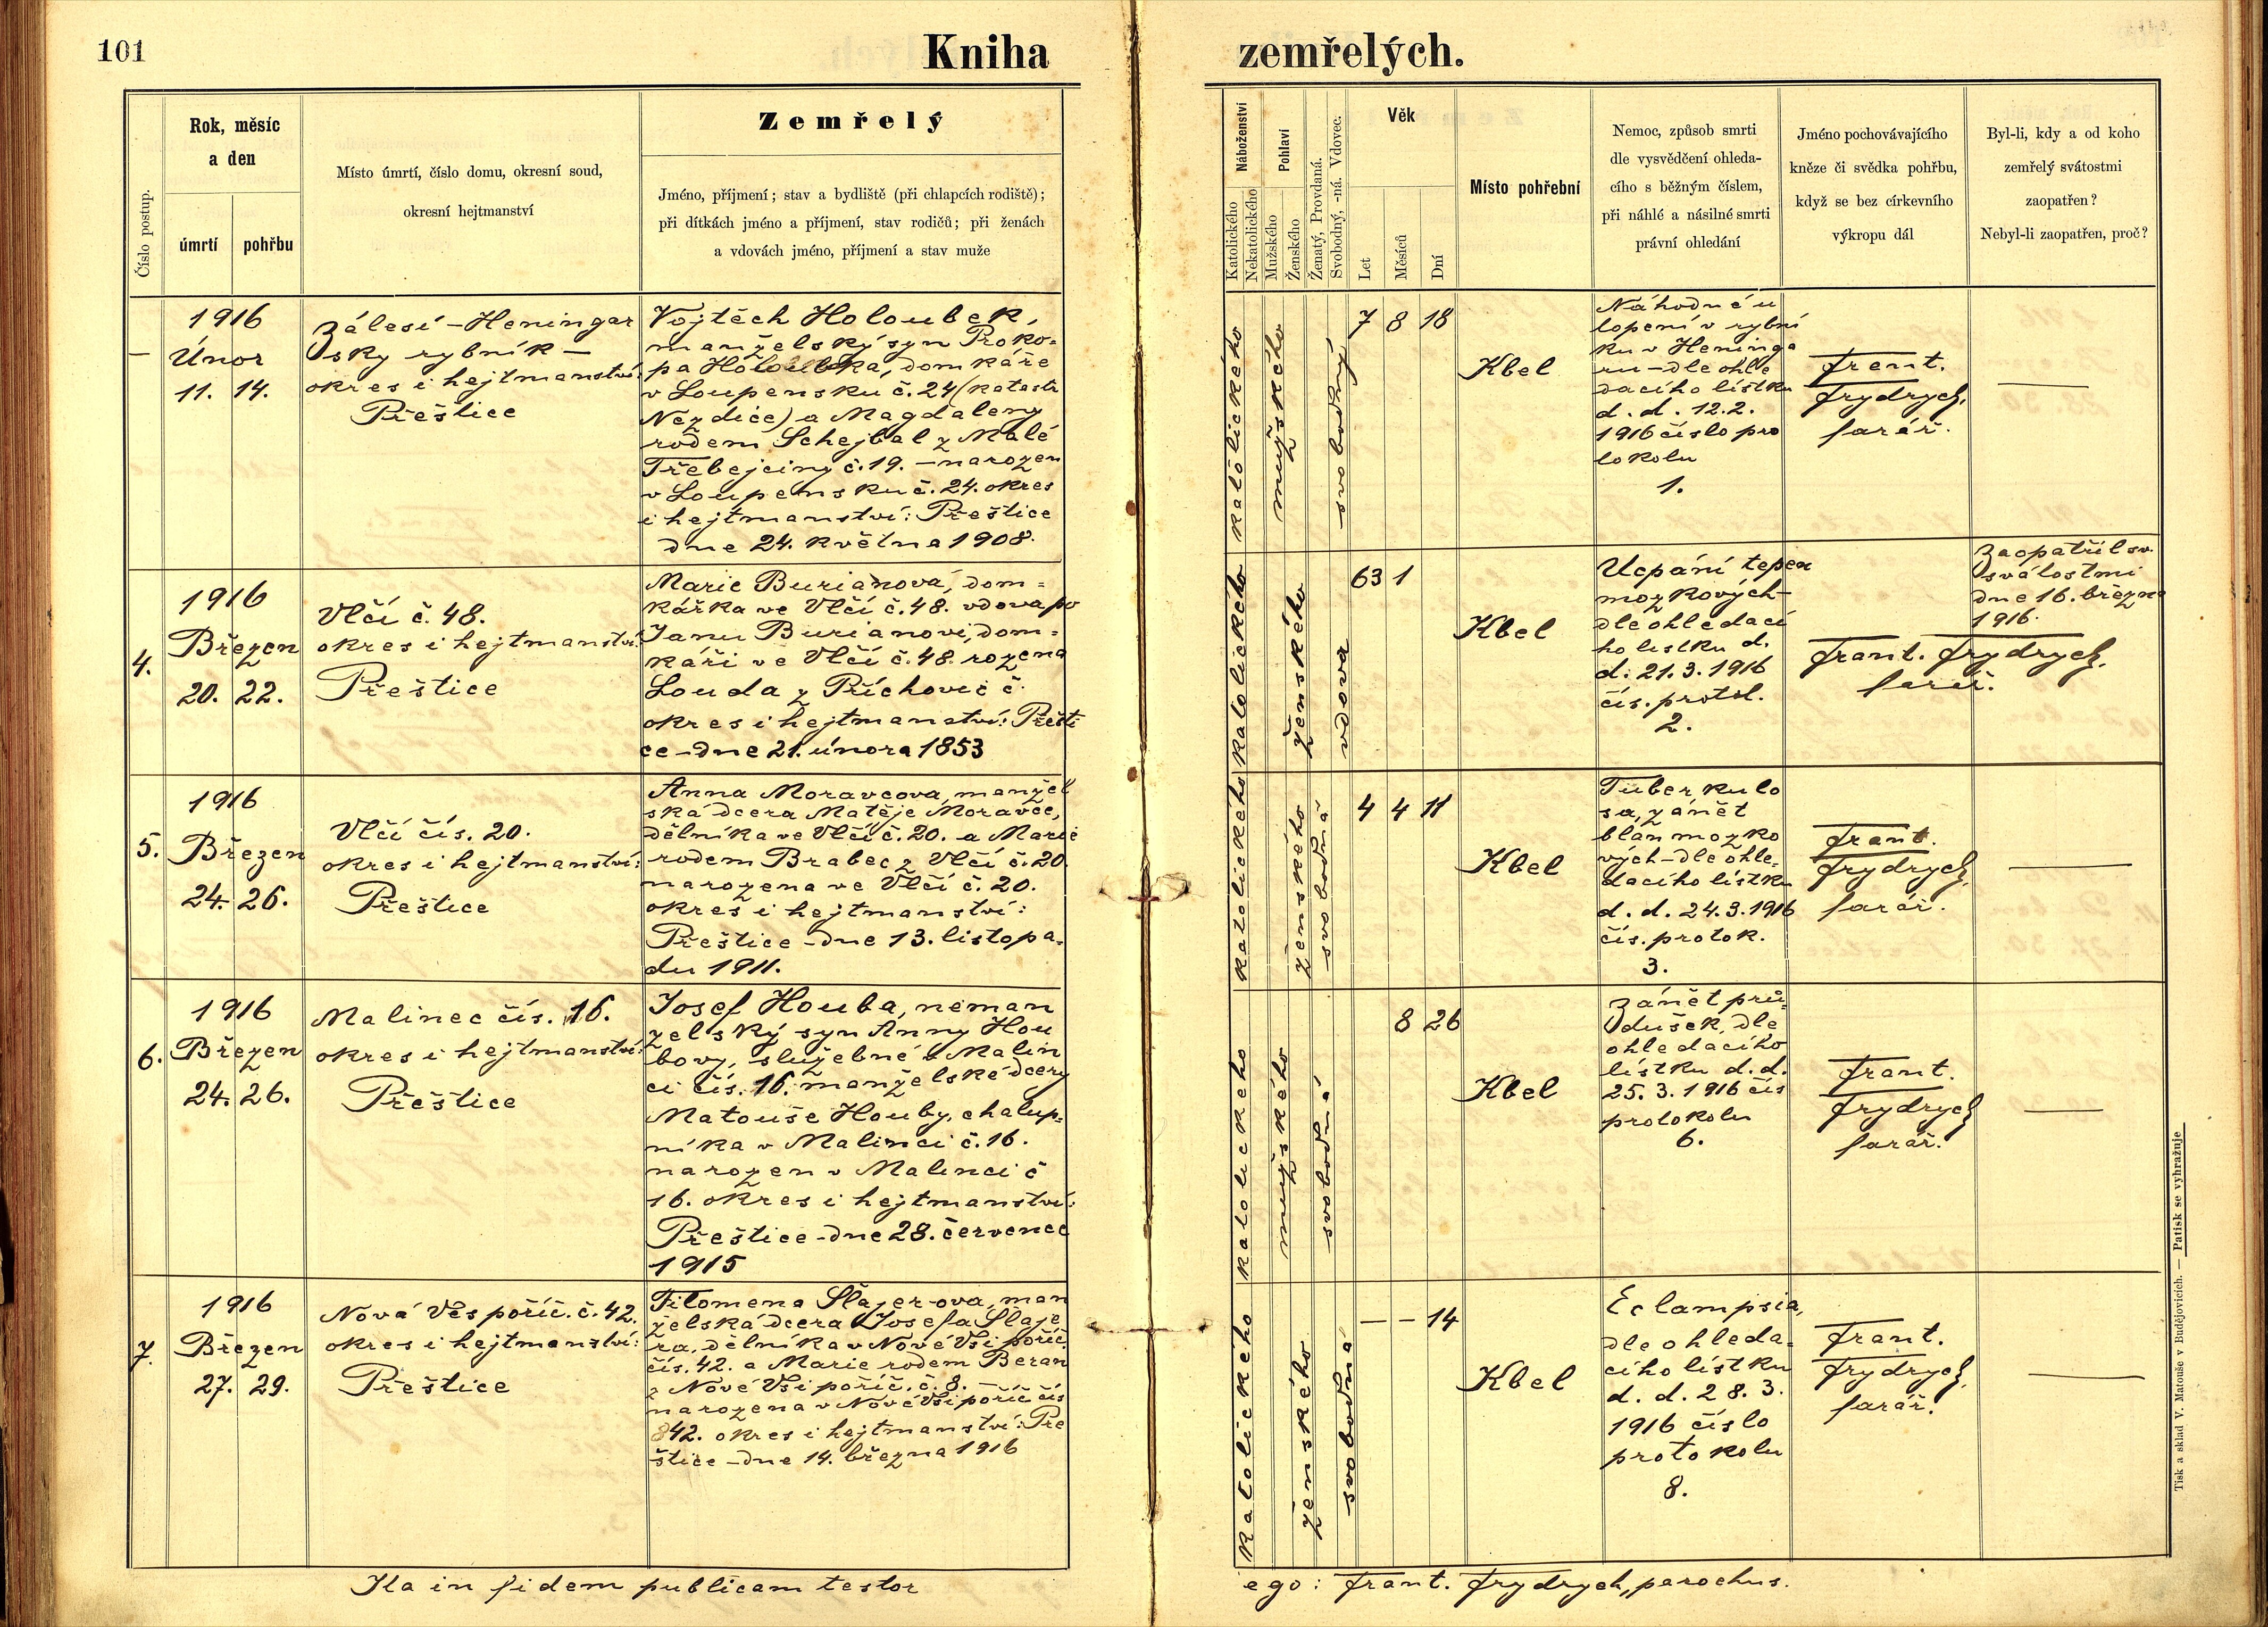 101
Kniha zemřelých.
Číslo postup.
Rok, měsíc
a den
úmrtí
pohřbu
Místo úmrtí, číslo domu, okresní soud,
okresní hejtmanství
Zemřelý
Jméno, příjmení; stav a bydliště (při chlapcích rodiště);
při dítkách jméno a příjmení, stav rodičů; při ženách
a vdovách jméno, příjmení a stav muže
Náboženství
Katolického
Nekatolického
Pohlaví
Mužského
Ženského
Ženatý, Provdaná.
Svobodný, -ná. Vdovec.
Věk
Let
Měsíců
Dní
Místo pohřební
Nemoc, způsob smrti
dle vysvědčení ohleda-
cího s běžným číslem,
při náhlé a násilné smrti
právní ohledání
Jméno pochovávajícího
kněze či svědka pohřbu,
když se bez církevního
výkropu dál
Byl-li, kdy a od koho
zemřelý svátostmi
zaopatřen?
Nebyl-li zaopatřen, proč?
—
1916
Únor
11. 14.
Zálesí - Heningar
sky rybník —
okres i hejtmanství:
Přeštice
Vojtěch Holoubek,
manželský syn Proko-
pa Holoubka, domkáře
v Loupensku č. 24 (katastr
Nezdice) a Magdaleny
rodem Schejbal z Malé
Třebejciny č. 19. — narozen
v Loupensku č. 24. okres
i hejtmanství: Přeštice
dne 24. května 1908.
katolického
mužského
svobodný
7 8 18
Kbel
Náhodné u
topení v rybní
ku v Heninga
ru - dle ohle
dacího lístku
d. d. 12.2.
1916 číslo pro
tokolu
1.
Frant.
Frydrych,
farář.
—
4.
1916
Březen
20. 22.
Vlčí č. 48.
okres i hejtmanství:
Přeštice
Marie Burianová, dom-
kářka ve Vlčí č. 48. vdova po
Janu Burianovi, dom-
káři ve Vlčí č. 48. rozena
Louda z Příchovic č.
okres i hejtmanství: Přešti
ce - dne 21. února 1853
katolického
ženského
vdova
63 1
Kbel
Ucpání tepen
mozkových -
dle ohledací
ho lístku d.
d. 21.3.1916
čís. protol.
2.
Zaopatřil sv.
svátostmi
dne 16. března
1916.
Frant. Frydrych,
farář.
5.
1916
Březen
24. 26.
Vlčí čís. 20.
okres i hejtmanství:
Přeštice
Anna Moravcova, manžel
ská dcera Matěje Moravce,
dělníka ve Vlčí č. 20. a Marie
rodem Brabec z Vlčí č. 20.
narozena ve Vlčí č. 20.
okres i hejtmanství:
Přeštice - dne 13. listopa-
du 1911.
katolického
ženského
svobodná
4 4 11
Kbel
Tuberkulo
sa, zánět
blan mozko
vých - dle ohle-
dacího lístku
d. d. 24.3.1916
čís. protok.
3.
Frant.
Frydrych,
farář.
—
6.
1916
Březen
24. 26.
Malinec čís. 16.
okres i hejtmanství:
Přeštice
Josef Houba, neman
želský syn Anny Hou
bovy, služebné v Malin
ci čís. 16. manželské dcery
Matouše Houby, chalup-
níka v Malinci č. 16.
narozen v Malinci č
16. okres i hejtmanství:
Přeštice - dne 28. července
1915
katolického
mužského
svobodná
8 26
Kbel
Zánět prů-
dušek, dle
ohledacího
lístku d. d.
25.3.1916 čís
protokolu
6.
Frant.
Frydrych
farář.
—
7.
1916
Březen
27. 29.
Nová Ves poříč. č. 42.
okres i hejtmanství:
Přeštice
Filomena Šlajer-ova, man
želská dcera Josefa Šlaje
ra, dělníka v Nové Vsi poříč.
čís. 42. a Marie rodem Beran
z Nové Vsi poříč. č. 8. —
narozena v Nové Vsi poříč čís
42. okres i hejtmanství: Pře
štice - dne 14. března 1916
katolického
ženského
svobodná
— — 14
Kbel
Eclampsia,
dle ohleda-
cího lístku
d. d. 28.3.
1916 číslo
protokolu
8.
Frant.
Frydrych,
farář.
—
Ita in fidem publicam testor
ego: Frant. Frydrych, parochus.
Tisk a sklad V. Matouše v Budějovicích. — Patisk se vyhražuje